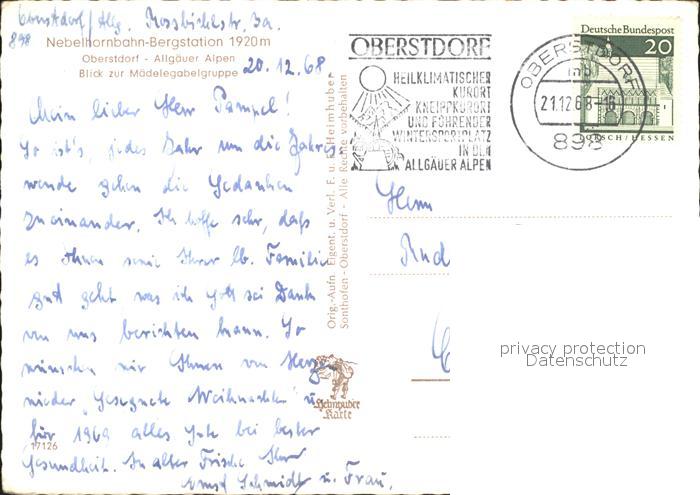 Oberstdorf/Allg. Rossbichlstr. 3a.
898
Nebelhornbahn-Bergstation 1920m
Oberstdorf - Allgäuer Alpen
Blick zur Mädelegabelgruppe
20.12.68
Mein lieber Herr Pampel!
So ist's, jedes Jahr um die Jahres-
wende gehen die Gedanken
zueinander. Ich hoffe sehr, daß
es Ihnen sowie Ihrer lb. Familie
gut geht was ich Gott sei Dank
von uns berichten kann. So
wünschen wir Ihnen von Herzen
wieder "Gesegnete Weihnachten" u.
für 1969 alles Gute bei bester
Gesundheit. In alter Frische Ihr
Ernst Schmidt u. Frau.
17126
Orig.-Aufn. Eigent. u. Verl. F. u. E. Heimhuber
Sonthofen - Oberstdorf - Alle Rechte vorbehalten
Heimhuber
Karte
OBERSTDORF
HEILKLIMATISCHER
KURORT
KNEIPPKURORT
UND FÜHRENDER
WINTERSPORTPLATZ
IN DEN
ALLGÄUER ALPEN
OBERSTDORF
mb
21.12.68-16
898
Deutsche Bundespost
20
LORSCH/HESSEN
Herrn
Rud
privacy protection
Datenschutz